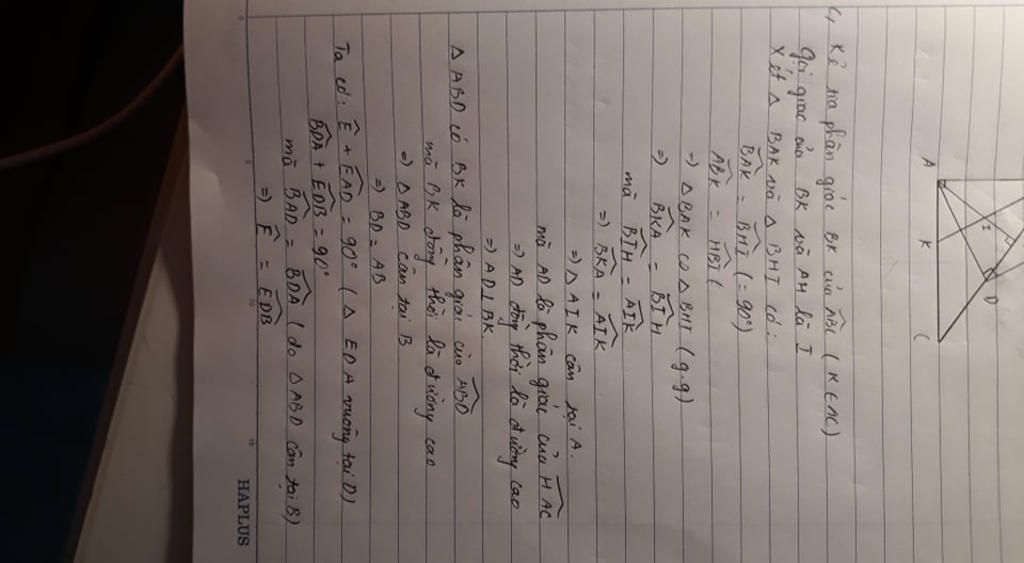 A
K
C
I
D
c, Kẻ tia phân giác BK của \widehat{ABC} (K ∈ AC)
Gọi giao của BK và AH là I
Xét △ BAK và △ BHI có:
\widehat{BAK} = \widehat{BHI} (= 90°)
\widehat{ABK} = \widehat{HBI} (
⇒ △BAK ∽ △BHI (g.g)
⇒ \widehat{BKA} = \widehat{BIH}
mà \widehat{BIH} = \widehat{AIK}
⇒ \widehat{BKA} = \widehat{AIK}
⇒ △ AIK cân tại A.
mà AD là phân giác của \widehat{HAC}
⇒ AD đồng thời là đường cao
⇒ AD ⊥ BK.
△ ABD có BK là phân giác của \widehat{ABD}
mà BK đồng thời là đường cao
⇒ △ABD cân tại B
⇒ BD = AB
Ta có: \widehat{E} + \widehat{EAD} = 90° (△ EDA vuông tại D)
\widehat{BDA} + \widehat{EDB} = 90°
mà \widehat{BAD} = \widehat{BDA} (do △ABD cân tại B)
⇒ \widehat{E} = \widehat{EDB}
HAPLUS